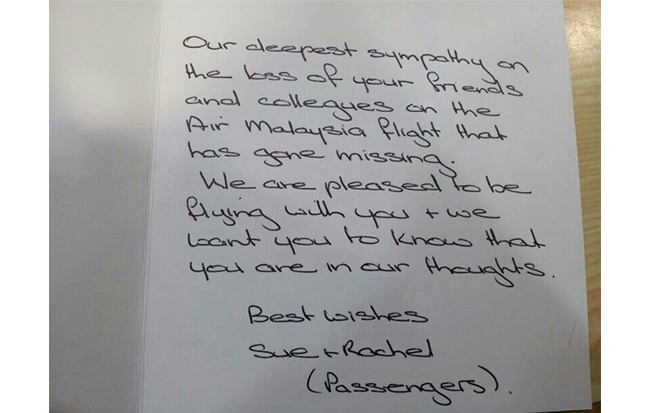 Our deepest sympathy on
the loss of your friends
and collegues on the
Air Malaysia flight that
has gone missing.
We are pleased to be
flying with you + we
want you to know that
you are in our thoughts.
Best wishes
Sue + Rachel
(Passengers).